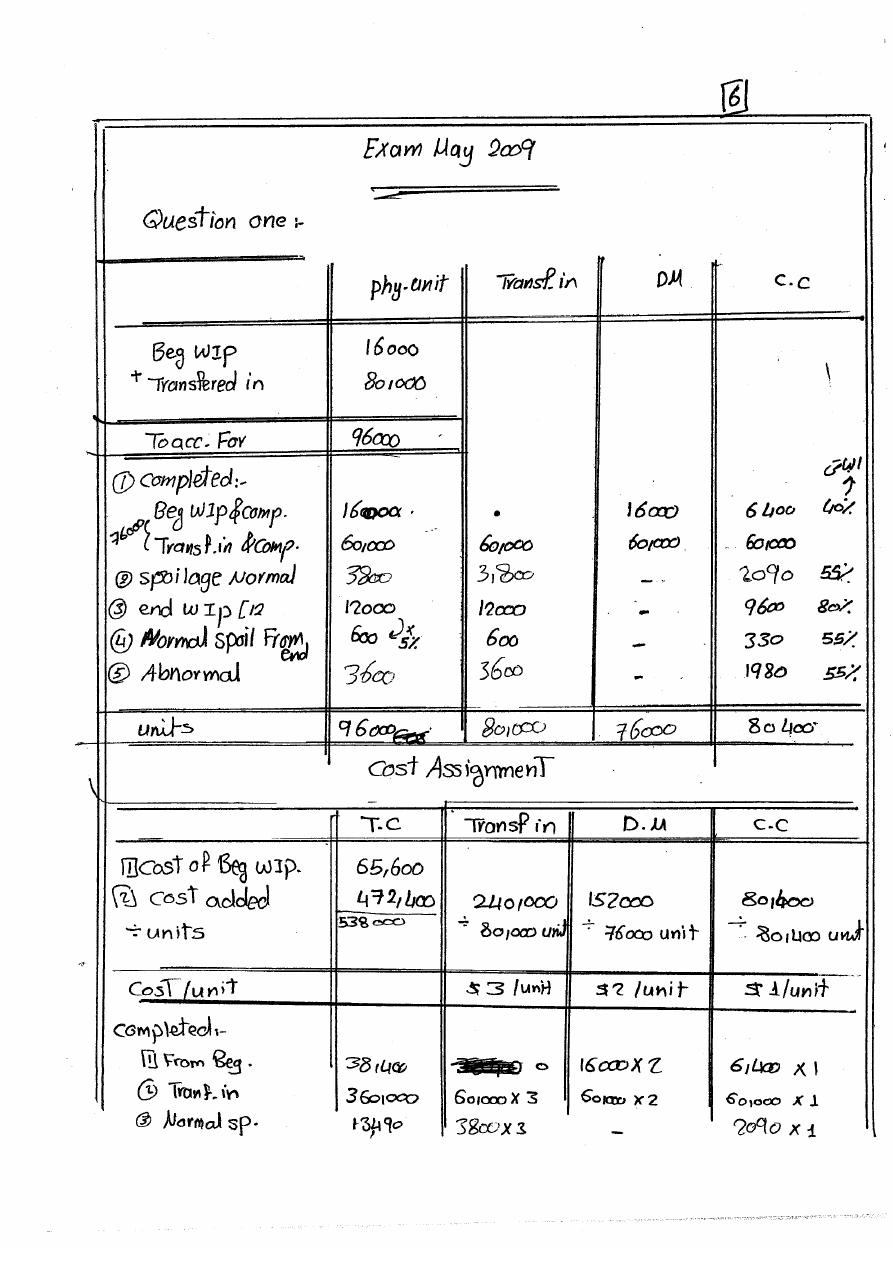 6
Exam May 2009
Question one :-
phy-unit Transf-in DM C.C
Beg WIP 16000
+ Transfered in 80,000
To acc. For 96000
① Completed:-
Beg WIP & comp. 16000 . 16000 6400 40%
76000 { Transf.in & Comp. 60,000 60,000 60,000 60,000
② Spoilage Normal 3800 3,800 - 2090 55%
③ end WIp [12 12000 12000 - 9600 80%
④ Normal spoil From end 600 x 5% 600 - 330 55%
⑤ Abnormal 3600 3600 - 1980 55%
units 96000 80,000 76000 80400
Cost Assignment
T.C Transf in D.M C.C
[1] Cost of Beg WIP. 65,600
[2] Cost added 472,400 240,000 152000 80,400
÷ units 538000 ÷ 80,000 unit ÷ 76000 unit ÷ 80,400 unit
Cost/unit $3/unit $2/unit $1/unit
Completed:-
[1] From Beg. 38,400 0 16000 X 2 6,400 X 1
② Tranf-in 360,000 60,000 X 3 60,000 X 2 60,000 X 1
③ Normal sp. 13,490 3800 X 3 - 2090 X 1